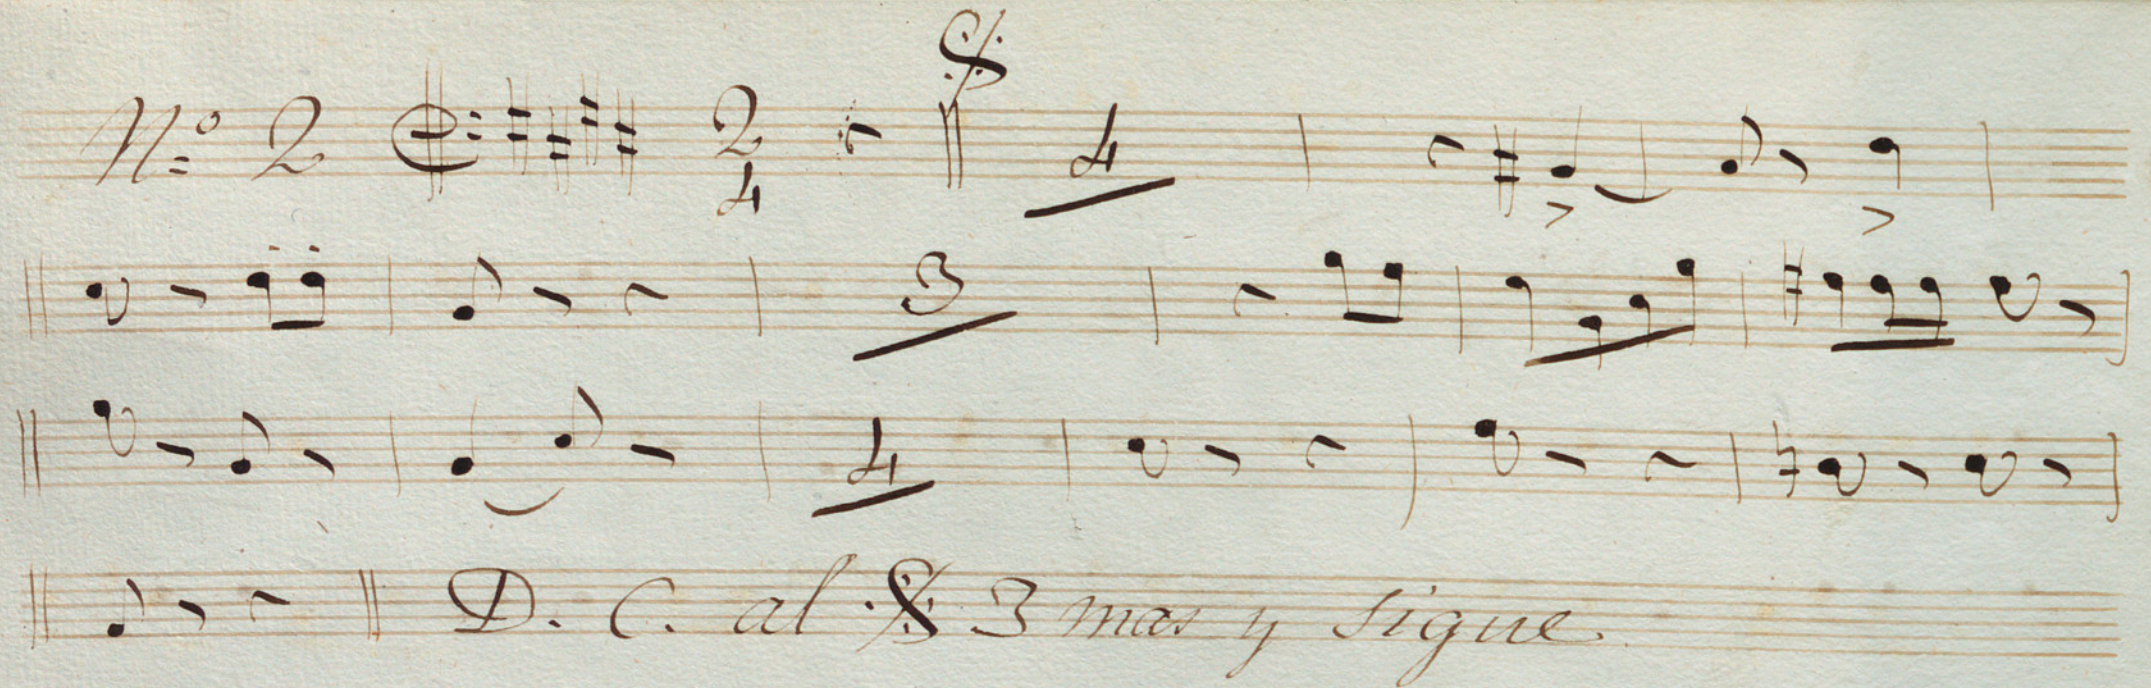 Nº 2 2/4 4
3
4
D. C. al 𝄋 3 mas y sigue